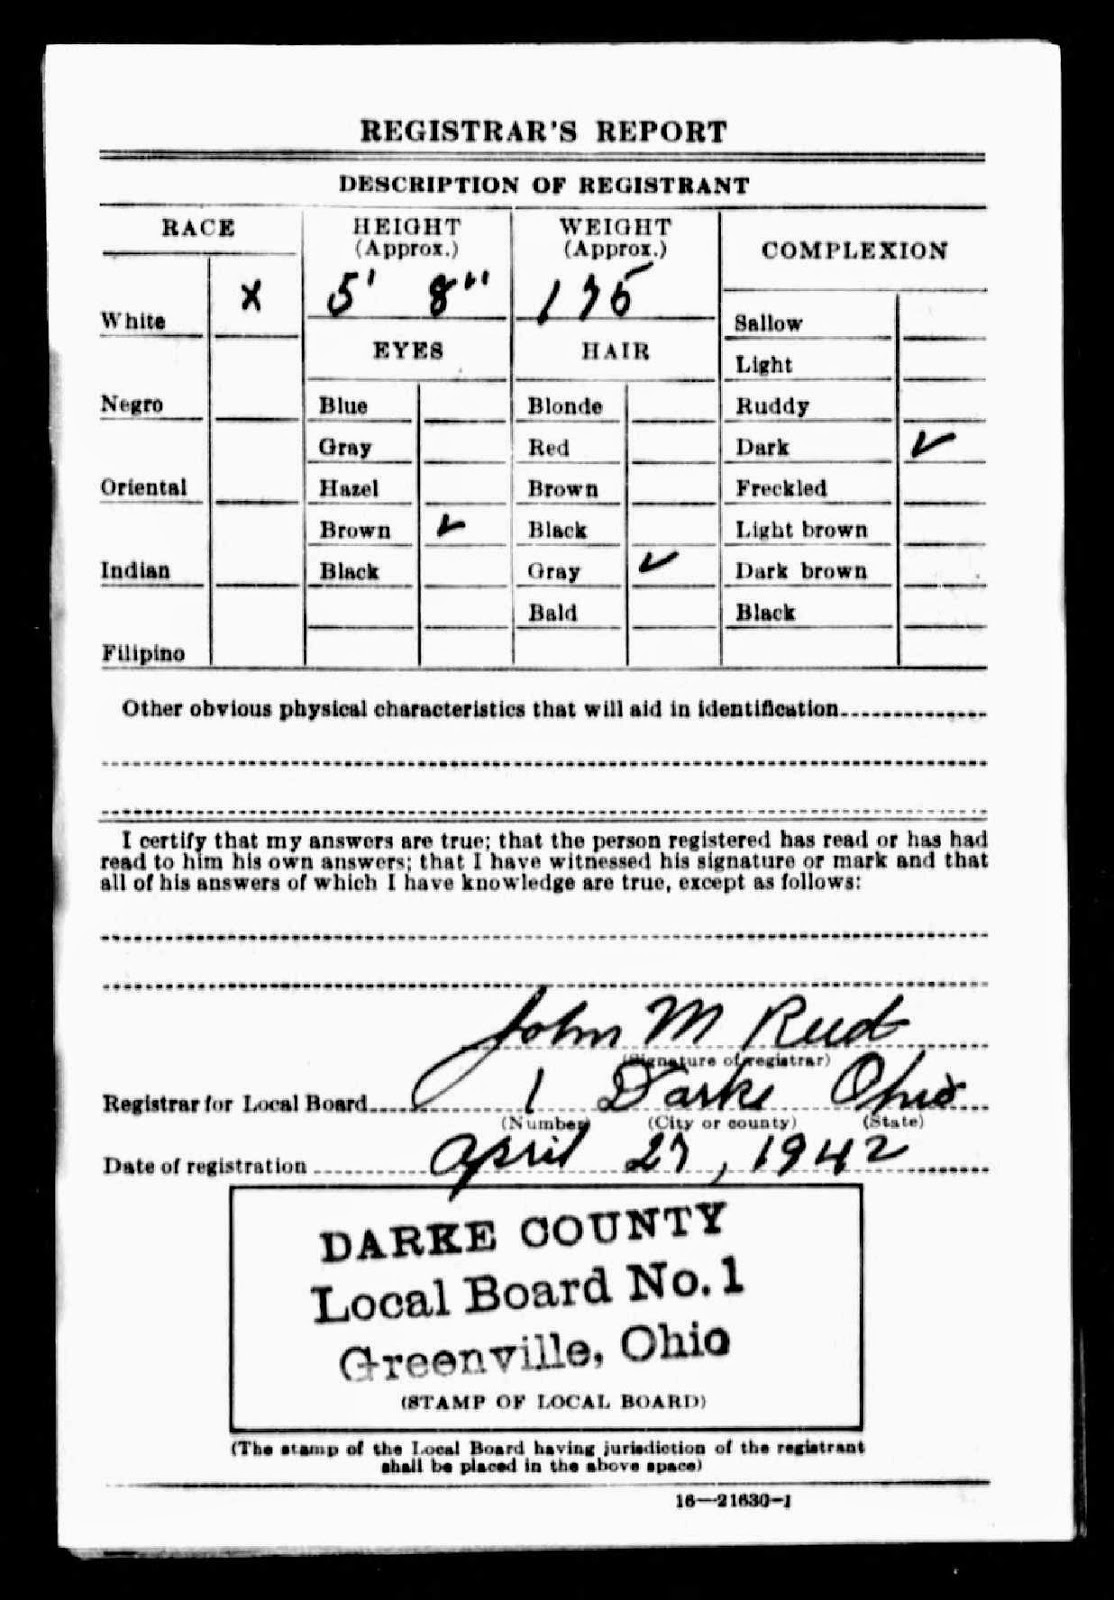 REGISTRAR'S REPORT
DESCRIPTION OF REGISTRANT
RACE HEIGHT (Approx.) WEIGHT (Approx.) COMPLEXION
White X 5' 8" 175 Sallow
EYES HAIR Light
Negro Blue Blonde Ruddy
Gray Red Dark ✓
Oriental Hazel Brown Freckled
Brown ✓ Black Light brown
Indian Black Gray ✓ Dark brown
Bald Black
Filipino
Other obvious physical characteristics that will aid in identification
I certify that my answers are true; that the person registered has read or has had
read to him his own answers; that I have witnessed his signature or mark and that
all of his answers of which I have knowledge are true, except as follows:
John M
(Signature of registrar)
Registrar for Local Board 1 Darke Ohio
(Number) (City or county) (State)
Date of registration April 27, 1942
DARKE COUNTY
Local Board No. 1
Greenville, Ohio
(STAMP OF LOCAL BOARD)
(The stamp of the Local Board having jurisdiction of the registrant
shall be placed in the above space)
16—21630-1